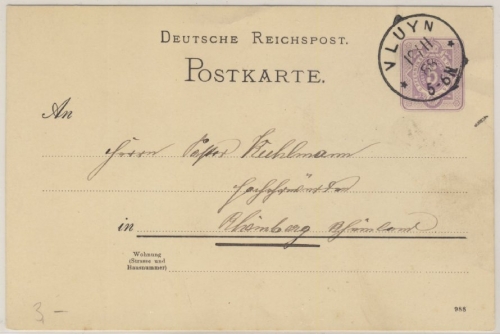 DEUTSCHE REICHSPOST.
POSTKARTE.
VLUYN
12/11
5-6N
An
Herrn Pastor Kuhlmann
Hochehrwürden
in Rheinberg Rheinland
Wohnung
(Strasse und
Hausnummer)
988
3 –